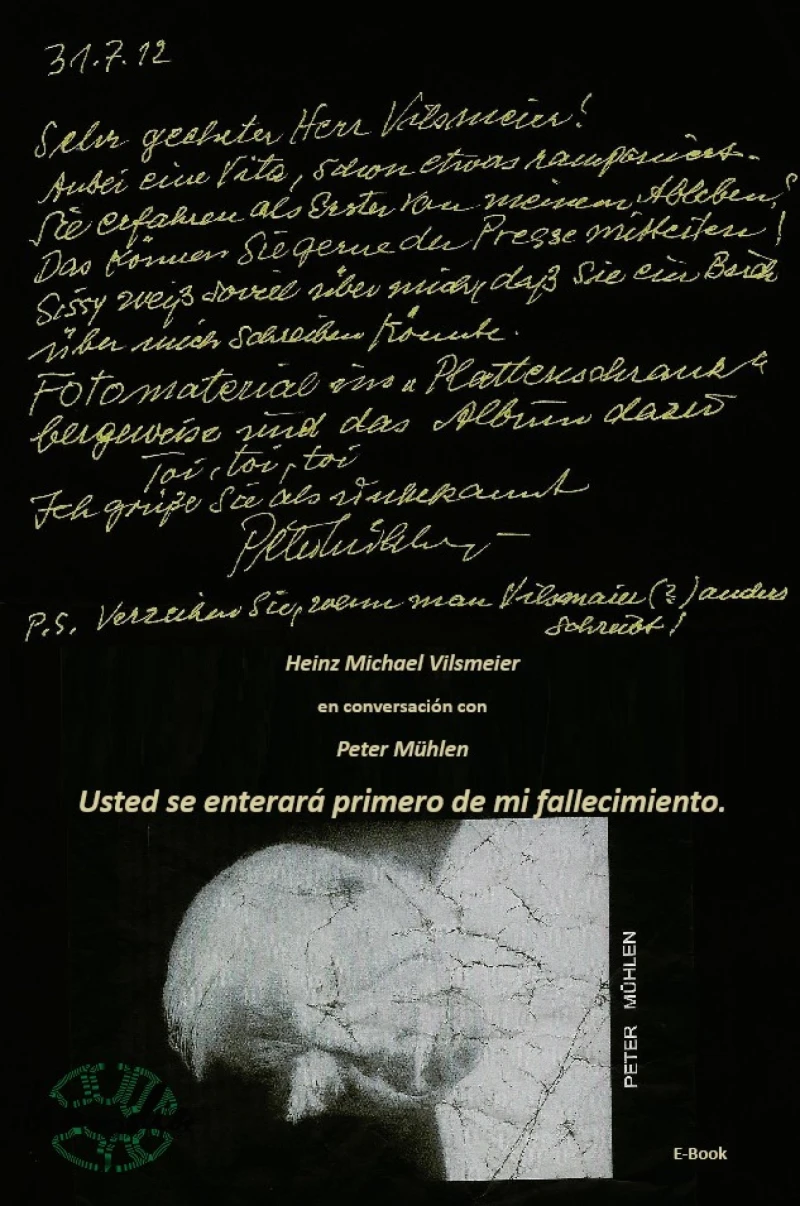 31.7.12
Sehr geehrter Herr Vilsmeier!
Anbei eine Vita, schon etwas ramponiert.
Sie erfahren als Erster von meinem Ableben,
Das können Sie gerne der Presse mitteilen!
Sissy weiß soviel über mich, daß Sie ein Buch
über mich schreiben könnte.
Fotomaterial im „Plattenschrank“
bergeweise und das Album dazu
Toi, toi, toi
Ich grüße Sie als unbekannt
Peter Mühlen
P.S. Verzeihen Sie, wenn man Vilsmaier (?) anders
schreibt!
Heinz Michael Vilsmeier
en conversación con
Peter Mühlen
Usted se enterará primero de mi fallecimiento.
PETER MÜHLEN
E-Book